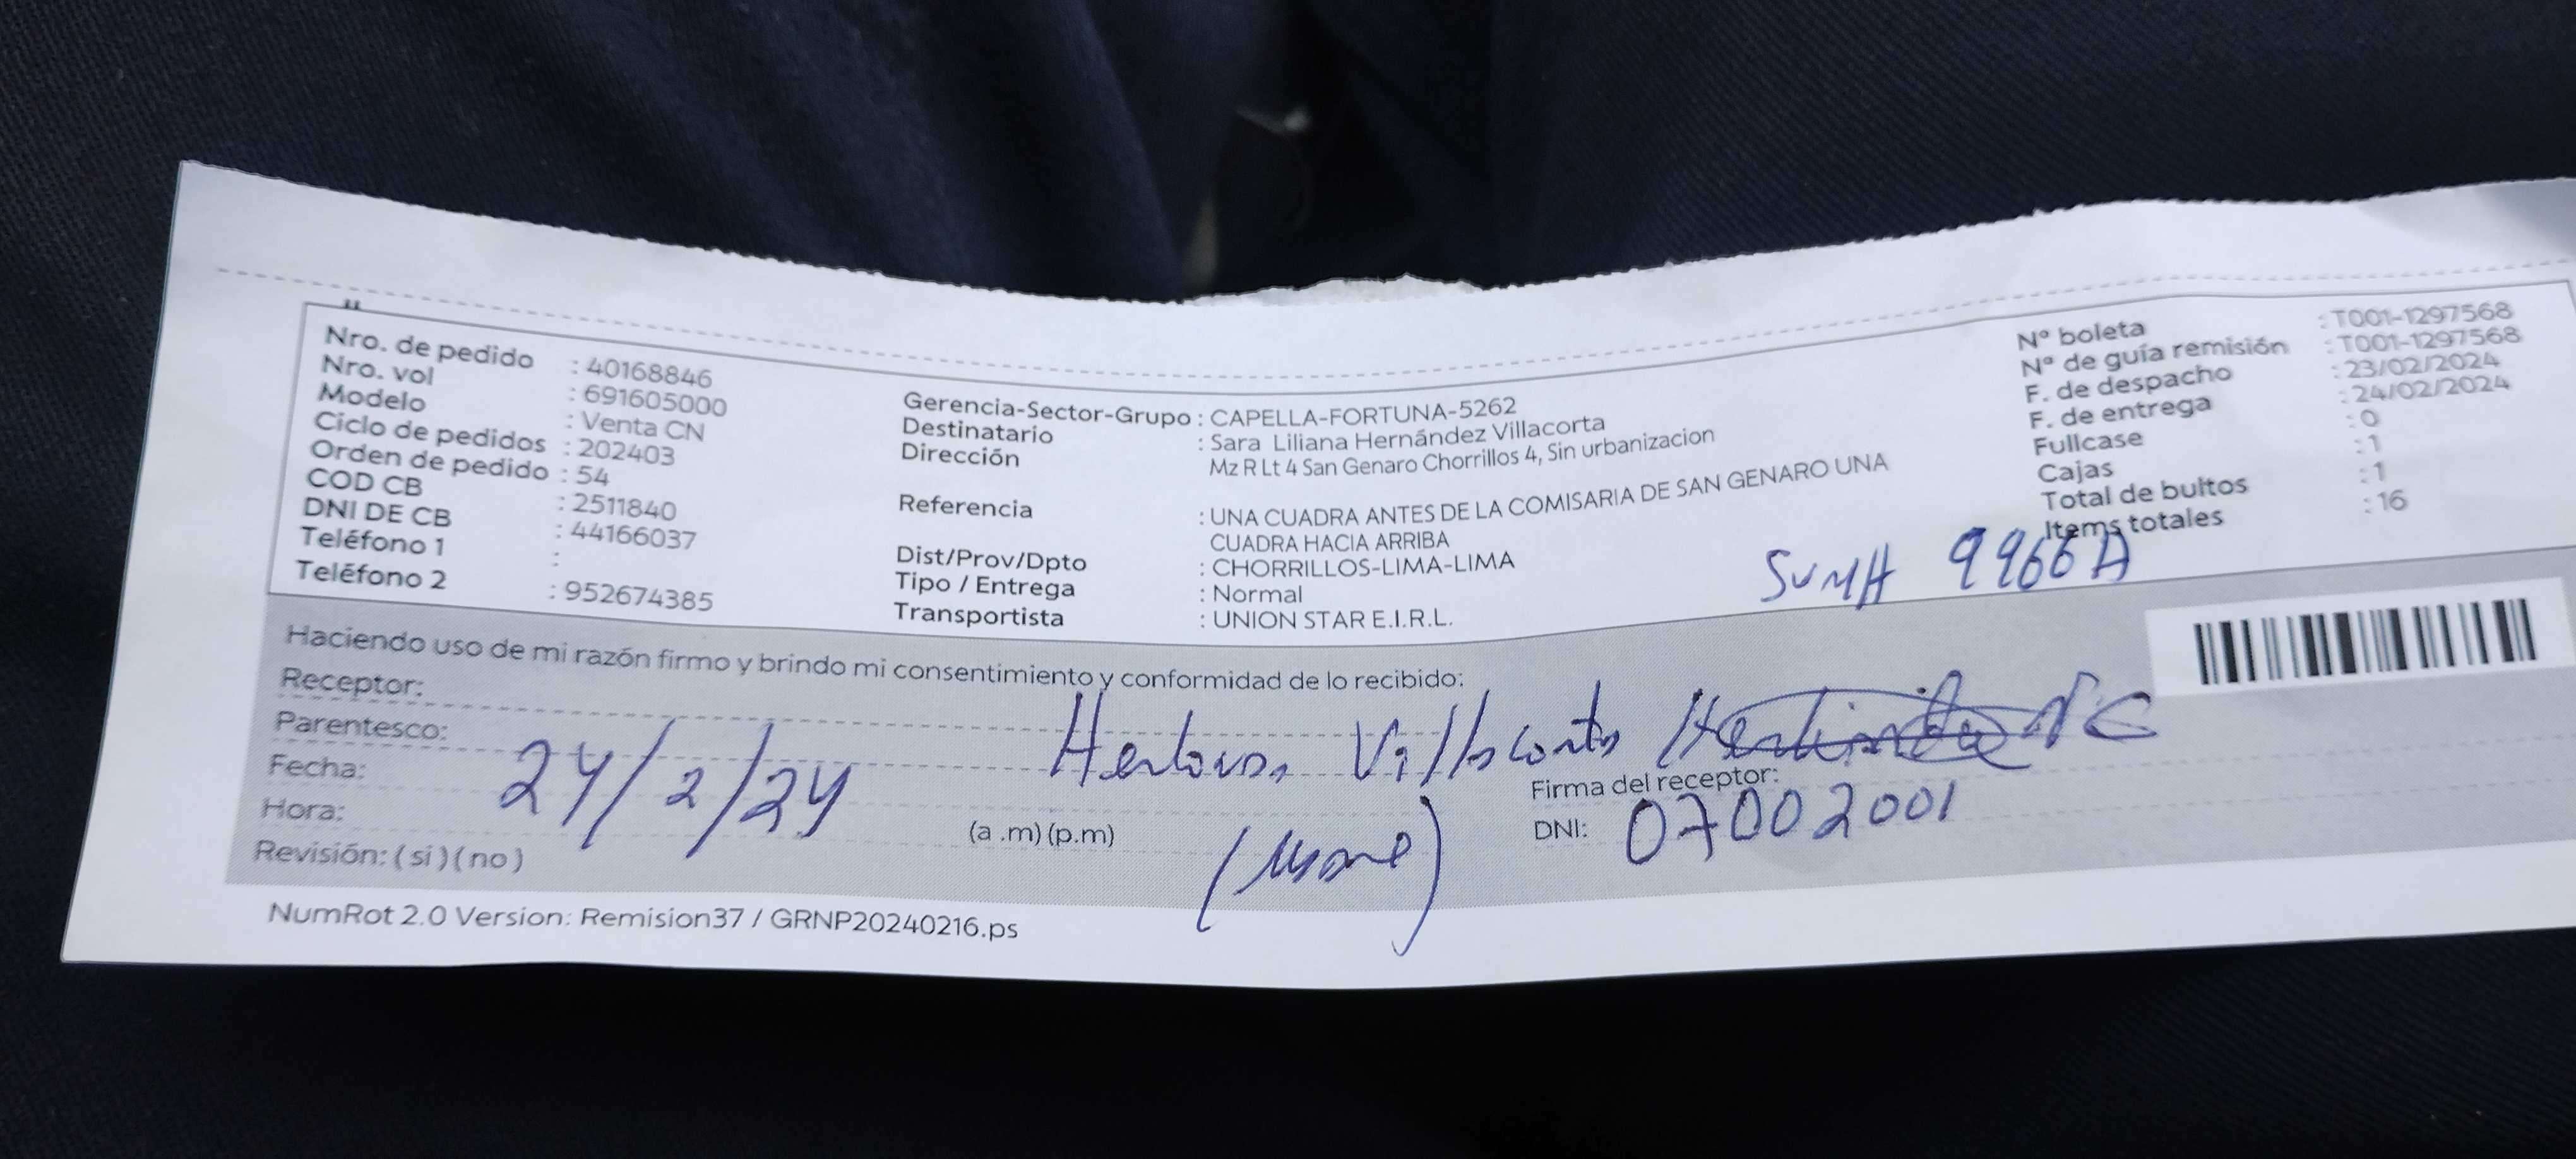 Nro. de pedido : 40168846
Nro. vol : 691605000
Modelo : Venta CN
Ciclo de pedidos : 202403
Orden de pedido : 54
COD CB : 2511840
DNI DE CB : 44166037
Teléfono 1 :
Teléfono 2 : 952674385
Gerencia-Sector-Grupo : CAPELLA-FORTUNA-5262
Destinatario : Sara Liliana Hernández Villacorta
Dirección Mz R Lt 4 San Genaro Chorrillos 4, Sin urbanizacion
Referencia : UNA CUADRA ANTES DE LA COMISARIA DE SAN GENARO UNA
CUADRA HACIA ARRIBA
Dist/Prov/Dpto : CHORRILLOS-LIMA-LIMA
Tipo / Entrega : Normal
Transportista : UNION STAR E.I.R.L.
Nº boleta : T001-1297568
Nº de guía remisión : T001-1297568
F. de despacho : 23/02/2024
F. de entrega : 24/02/2024
Fullcase : 0
Cajas : 1
Total de bultos : 1
Items totales : 16
9966A
Haciendo uso de mi razón firmo y brindo mi consentimiento y conformidad de lo recibido:
Receptor:
Parentesco:
Fecha: 24/2/24
Hora: (a .m) (p.m)
Revisión: ( si ) ( no )
Firma del receptor:
DNI: 07002001
NumRot 2.0 Version: Remision37 / GRNP20240216.ps